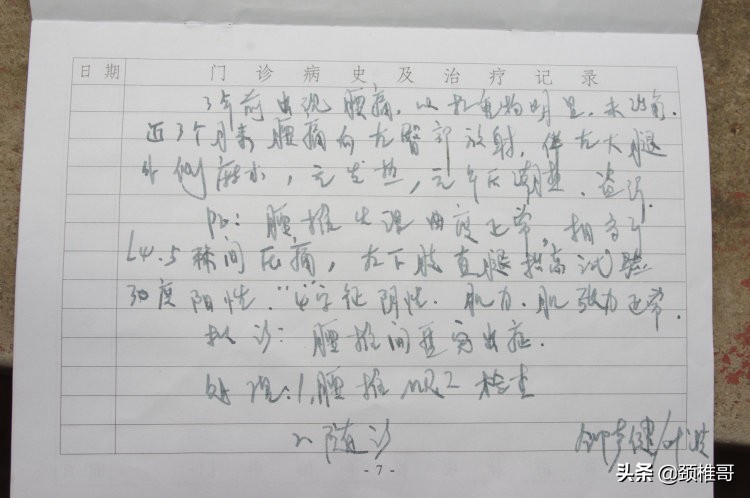 日期 门诊病史及治疗记录
3年前出现腰痛,以扛重物明显,未治疗.
近3个月来腰痛向左臀部放射,伴左大腿
外侧麻木,无发热,无午后潮热、盗汗.
PE:腰椎生理曲度正常,相当于
L4.5棘间压痛,左下肢直腿抬高试验
30度阳性."4"字征阴性.肌力.肌张力正常.
拟诊:腰椎间盘突出症.
处理:1、腰椎MRI检查
2、随诊
- 7 -
头条 @颈椎哥